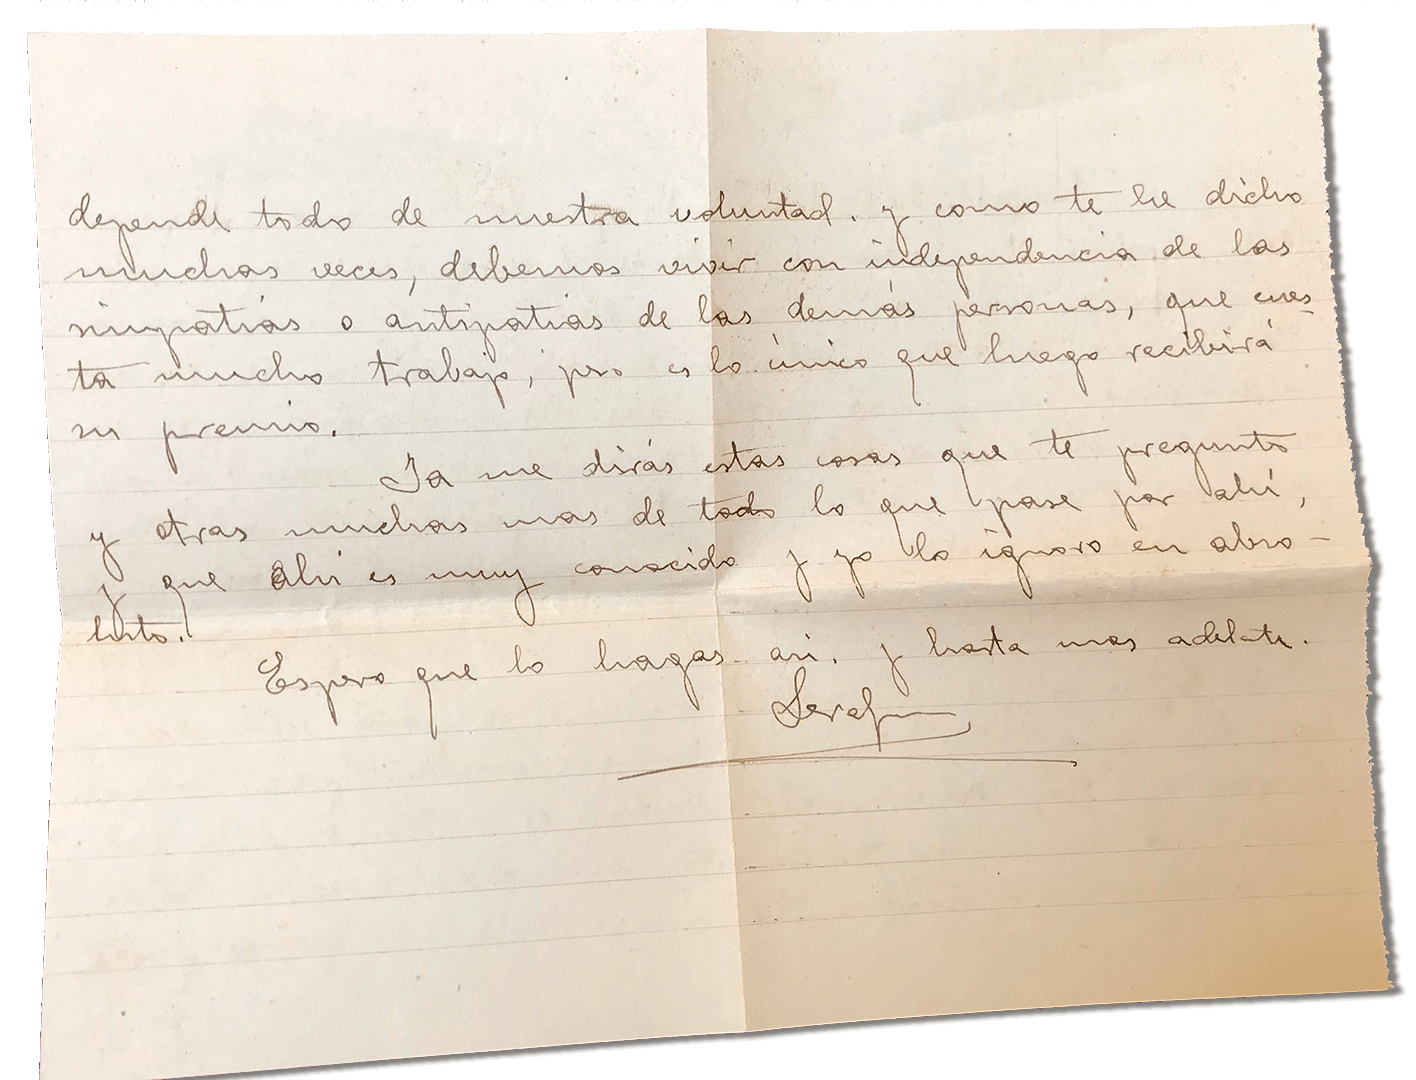 depende todo de nuestra voluntad. y como te he dicho
muchas veces, debemos vivir con independencia de las
simpatías o antipatías de las demás personas, que cues-
ta mucho trabajo, pero es lo único que luego recibirá
su premio.
Ya me dirás estas cosas que te pregunto
y otras muchas mas de todo lo que pase por ahí,
y que ahí es muy conocido y yo lo ignoro en abso-
luto.
Espero que lo hagas asi. y hasta mas adelate.
Serafin